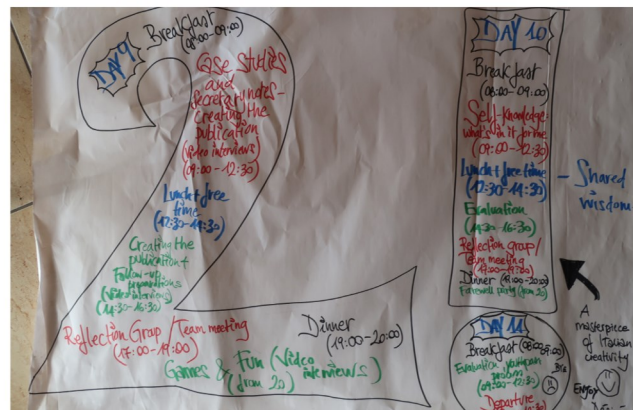 DAY 9
Breakfast
(08:00-09:00)
Case Studies
and
Secret roundes-
creating the
publication
(video interviews)
(09:00-12:30)
Lunch + free
time
(12:30-14:30)
Creating the
publication +
Follow-up
preparations
(Video interviews)
(14:30-16:30)
Reflection Group / Team meeting
(17:00-19:00)
Dinner
(19:00-20:00)
Games & Fun (Video
(from 20) interviews)
DAY 10
Breakfast
(08:00-09:00)
Self-knowledge:
what's in it for me
(09:00-12:30)
Lunch + free time
(12:30-14:30)
- Shared
wisdom
Evaluation
(14:30-16:30)
Reflection group/
Team meeting
Dinner (19:00-20:00)
Farewell party (from 20)
A
masterpiece
of Italian
creativity
Enjoy
DAY 11
Breakfast (08:00-09:00)
Evaluation
(09:00-12:30)
Departure